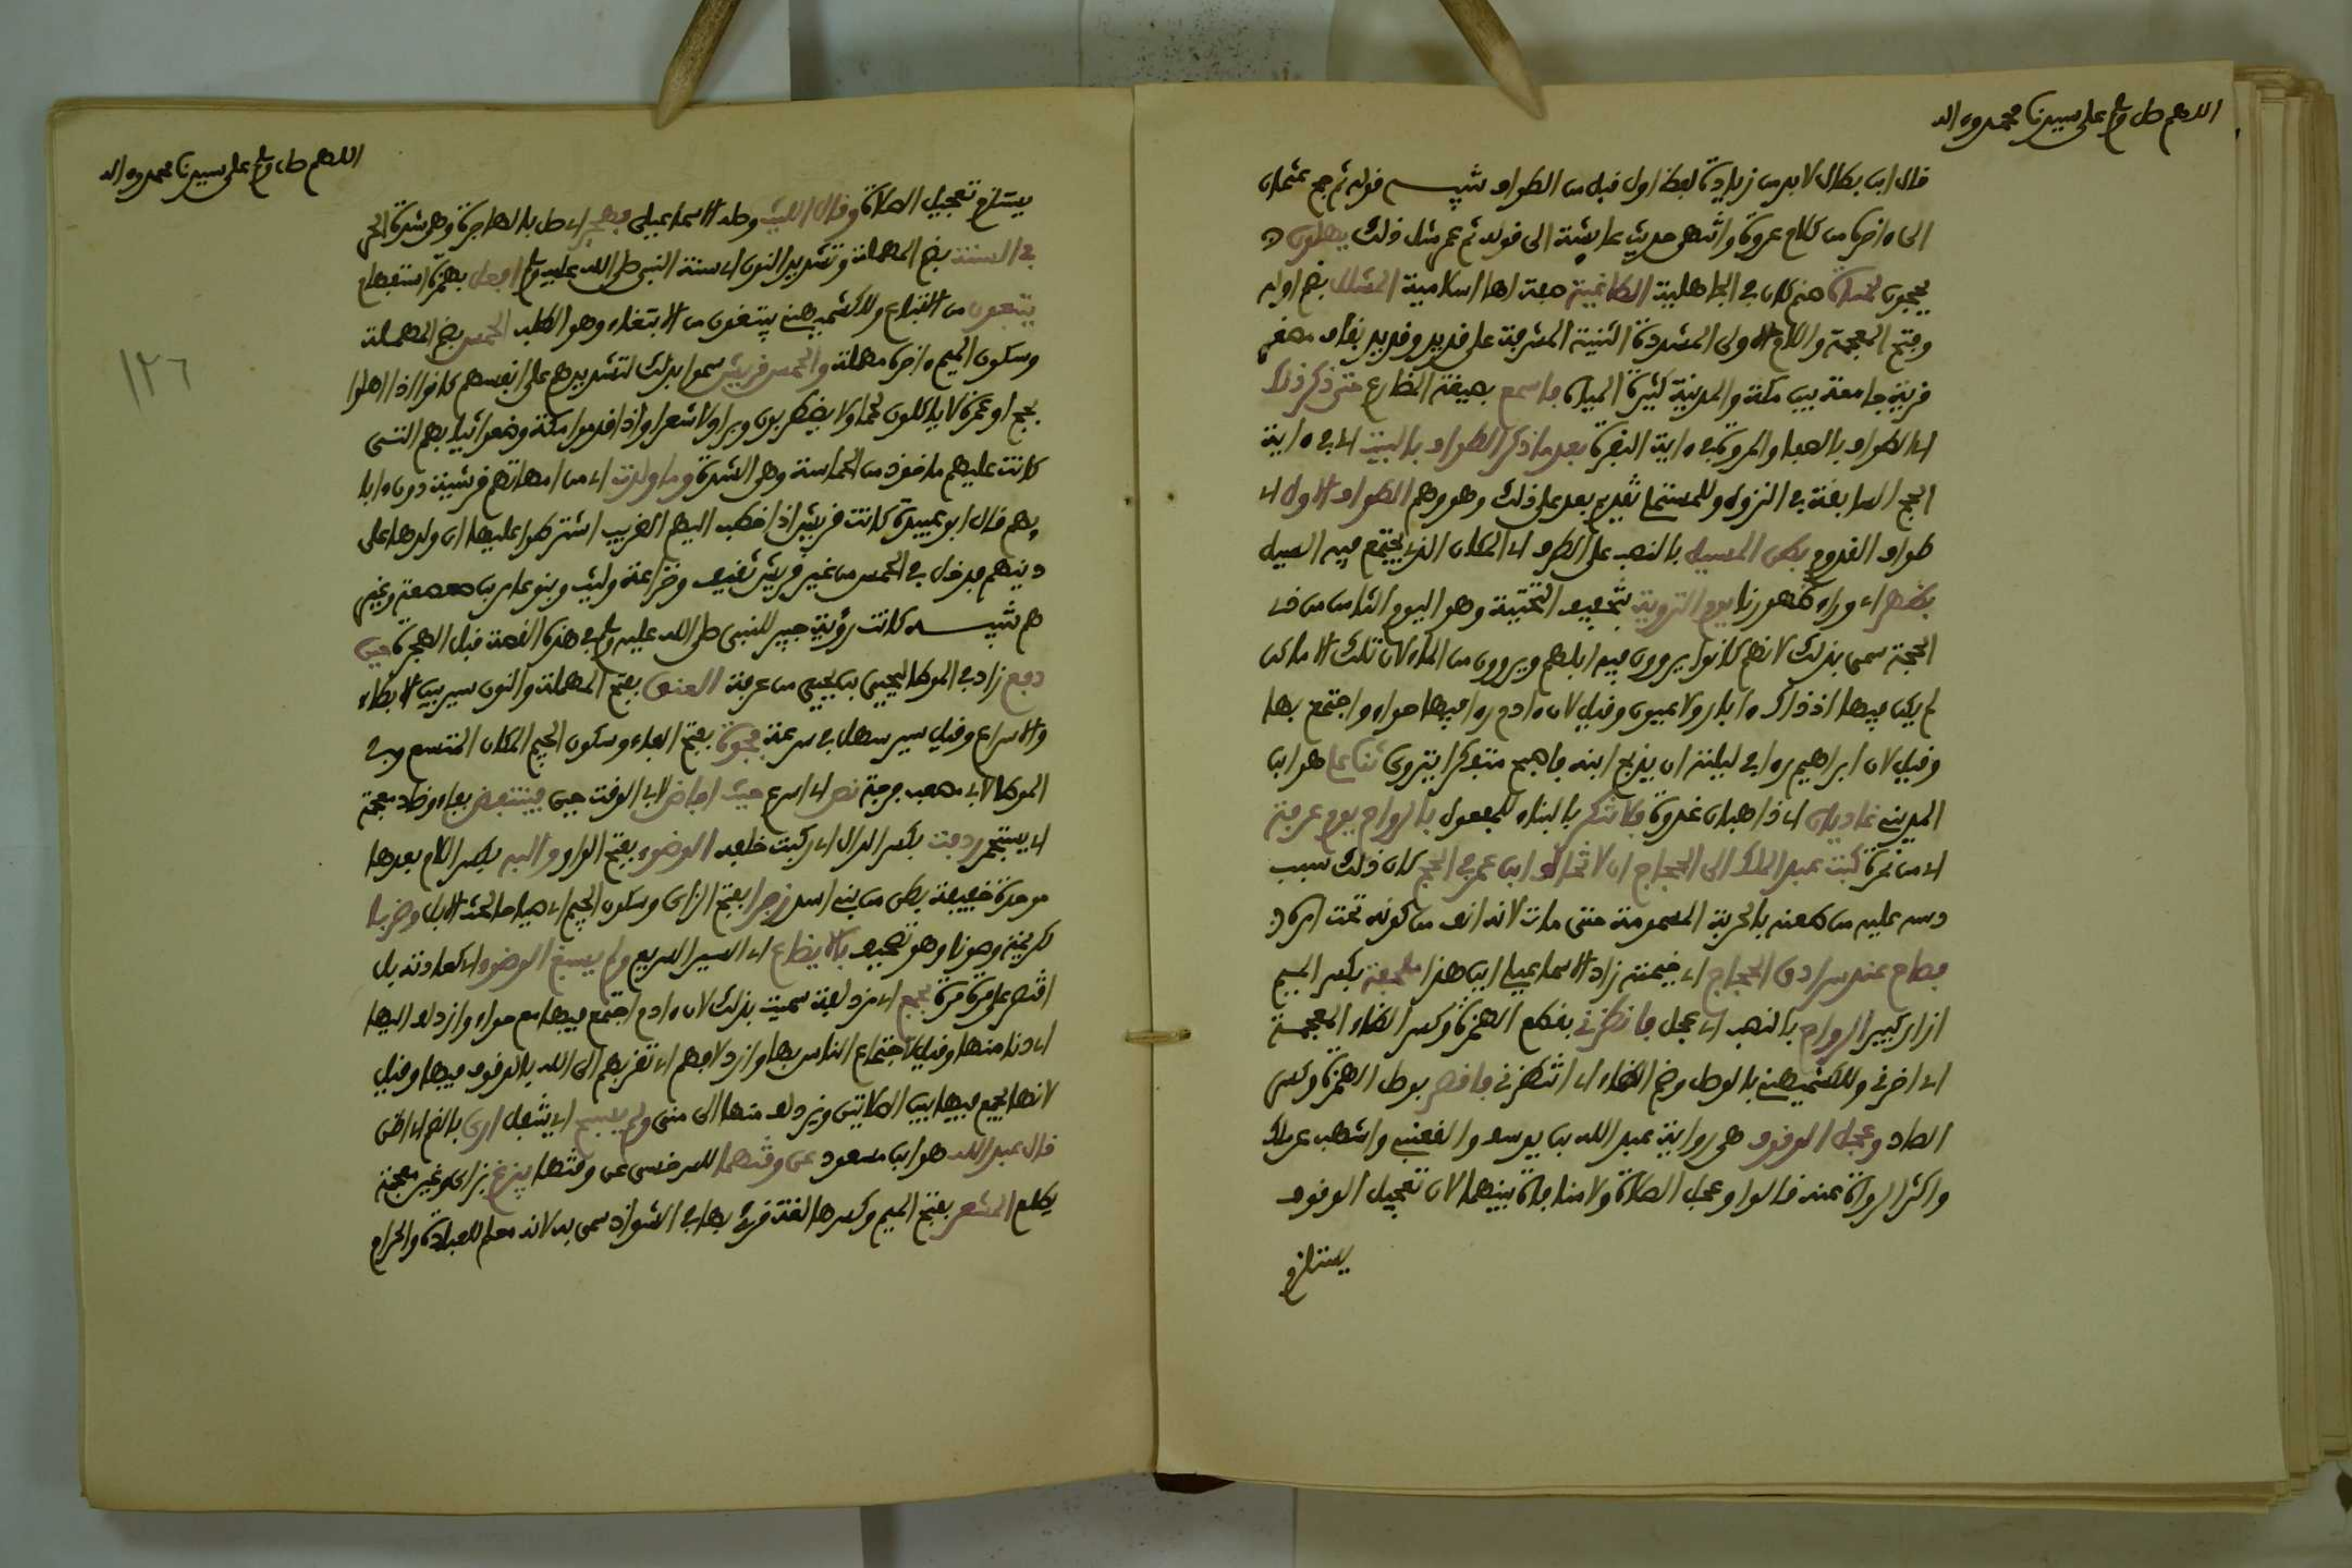 اللهم صل وسلم على سيدنا محمد وءاله
قال ابن بطال لا بد من زيادة لفظ اول قبل من الطواف تنبيه قوله ثم حج عثمان
الى ءاخره من كلام عروة وانتهى حديث عائشة الى قوله ثم عمر مثل ذلك يهلون اي
يحجون لمناة صنم كان في الجاهلية الطاغية صفة لها اسلامية المشلل بضم اوله
وفتح المعجمة واللام الاولى المشددة الثنية المشرفة على قديد وقديد بقاف مصغر
قرية جامعة بين مكة والمدينة كثيرة المياه فاسمع بصيغة المضارع حتى ذكر ذلك
اي الطواف بالصفا والمروة في ءاية البقرة بعد ما ذكر الطواف بالبيت اي في ءاية
الحج السابقة في النزول وللمستملي تقديم بعد على ذلك وهو وهم الطواف الاول اي
طواف القدوم بطن المسيل بالنصب على الظرف اي المكان الذي يجتمع فيه السيل
بظهر اي وراء ظهورنا يوم التروية بتخفيف التحتية وهو اليوم الثامن من ذي
الحجة سمي بذلك لانهم كانوا يروون فيه ابلهم ويروون من الماء لان تلك الاماكن
لم يكن فيها اذ ذاك ءابار ولا عيون وقيل لان ءادم رءا فيها حواء واجتمع بها
وقيل لان ابراهيم رءا في ليلته ان يذبح ابنه فاصبح متفكرا يتروى ثنا علي هو ابن
المديني غاديان اي ذاهبان غدوة فلا ينكر بالبناء للمفعول بالرواح يوم عرفة
اي من نمرة كتب عبد الملك الى الحجاج ان لا تخالف ابن عمر في الحج كان ذلك سبب
دسه عليه من طعنه بالحربة المسمومة حتى مات لانه انف من كونه تحت امره
فصاح عند سرادق الحجاج اي خيمته زاد الاسماعيلي اين هذا ملحفة بكسر الميم
ازار كبير الرواح بالنصب اي عجل فانظرني بقطع الهمزة وكسر الظاء المعجمة
اي اخرني وللكشميهني بالوصل وضم الظاء اي انتظرني فاقصر بوصل الهمزة وكسر
الصاد وعجل الوقوف هي رواية عبد الله بن يوسف والقعنبي واشهب عن ملك
واكثر الرواة عنه قالوا وعجل الصلاة ولا منافاة بينهما لان تعجيل الوقوف
يستلزم
اللهم صل وسلم على سيدنا محمد وءاله
١٢٦
يستلزم تعجيل الصلاة وقال الليث وصله الاسماعيلي فهجر اي صل بالهاجرة وهي شدة الحر
في السنة بضم المهملة وتشديد النون اي سنة النبي صلى الله عليه وسلم افعل بهمزة استفهام
يتبعون من الاتباع وللكشميهني يبتغون من الابتغاء وهو الطلب الحمس بضم المهملة
وسكون الميم ءاخره مهملة والحمس قريش سموا بذلك لتشديدهم على انفسهم كانوا اذا اهلوا
بحج او عمرة لا ياكلون لحما ولا يضربون وبرا ولا شعرا واذا قدموا مكة وضعوا ثيابهم التي
كانت عليهم ماخوذ من الحماسة وهي الشدة وما ولدت اي من امهاتهم قرشية دون ءابا
ئهم قال ابو عبيدة كانت قريش اذا خطب اليهم الغريب اشترطوا عليها ان ولدها على
دينهم فدخل في الحمس من غير قريش ثقيف وخزاعة وليث وبنو عامر بن صعصعة وغير
هم تنبيه كانت رؤية جبير للنبي صلى الله عليه وسلم في هذه القصة قبل الهجرة حين
دفع زاد في الموطا ليحيى بن يحيى من عرفة العنق بفتح المهملة والنون سير بين الابطاء
والاسراع وقيل سير سهل في سرعة فجوة بفتح الفاء وسكون الجيم المكان المتسع وفي
الموطا لابي مصعب فرجة نص اي اسرع حيث افاض لابي الوقت حين فينتفض بفاء وضاد معجمة
اي يستجمر ردفت بكسر الدال اي ركبت خلفه الوضوء بفتح الواو والبة بكسر اللام بعدها
موحدة خفيفة بطن من بني اسد زجرا بفتح الزاي وسكون الجيم اي صياحا لحث الابل وضربا
لكريمة وصوتا وهو تصحيف بالايضاع اي السير السريع ولم يسبغ الوضوء اي كعادته بل
اقتصر على مرة مرة بجمع اي مزدلفة سميت بذلك لان ءادم اجتمع فيها مع حواء وازدلف اليها
اي دنا منها وقيل لاجتماع الناس بها وازدلافهم اي تقربهم الى الله بالوقوف فيها وقيل
لانها يجمع فيها بين الصلاتين ويزدلف منها الى منى ولم يسبح اي يتنفل ارى بالضم اي اظن
قال عبد الله هو ابن مسعود عن وقتهما للسرخسي عن وقتها يبزغ بزاي وغين معجمة
يطلع المشعر بفتح الميم وكسرها لغة قرئ بها في الشواذ سمي به لانه معلم للعبادة والحرام